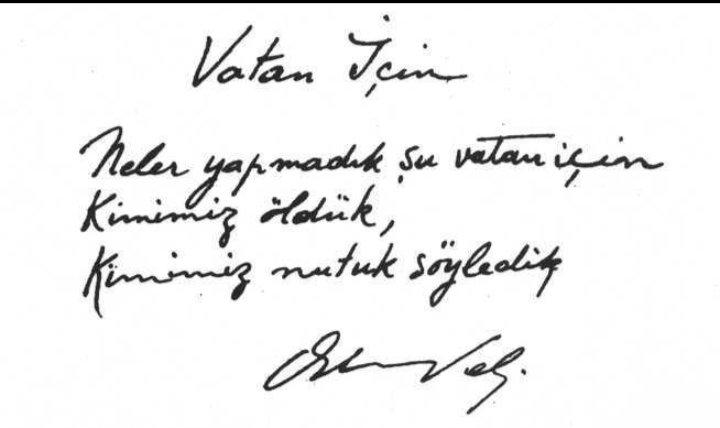 Vatan İçin
Neler yapmadık şu vatan için
Kimimiz öldük,
Kimimiz nutuk söyledik
Orhan Veli